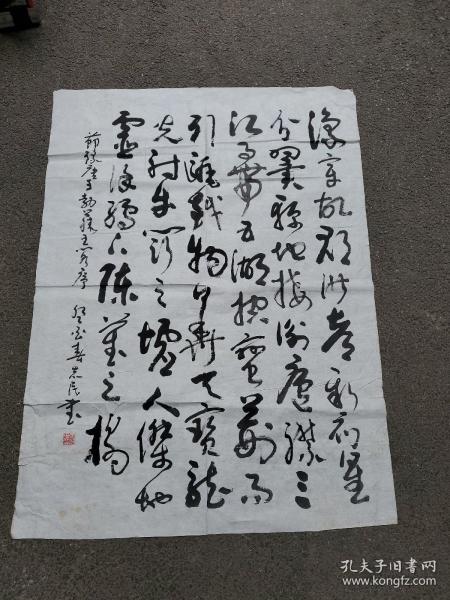 豫章故郡洪都新府星
分翼轸地接衡庐襟三
江而带五湖控蛮荆而
引瓯越物华天宝龙
光射牛斗之墟人杰地
灵徐孺下陈蕃之榻
节录唐王勃滕王阁序
书
孔夫子旧书网
www.kongfz.com